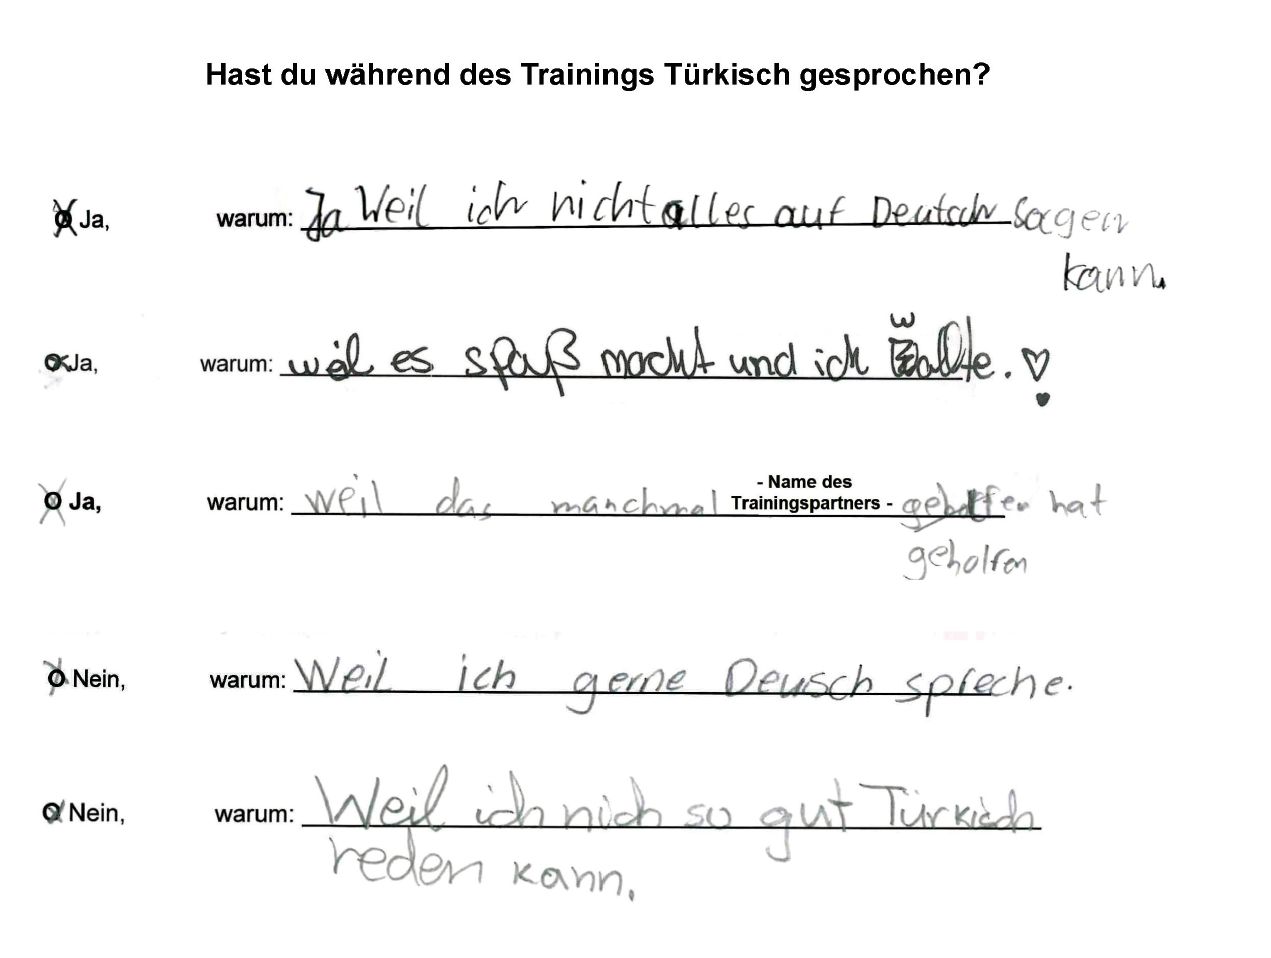 Hast du während des Trainings Türkisch gesprochen?
Ja, warum: Ja Weil ich nicht alles auf Deutsch sagen
kann.
Ja, warum: weil es spaß macht und ich wollte.
Ja, warum: weil das manchmal - Name des Trainingspartners - geholfen hat
geholfen
Nein, warum: Weil ich gerne Deusch spreche.
Nein, warum: Weil ich nich so gut Türkisch
reden kann.